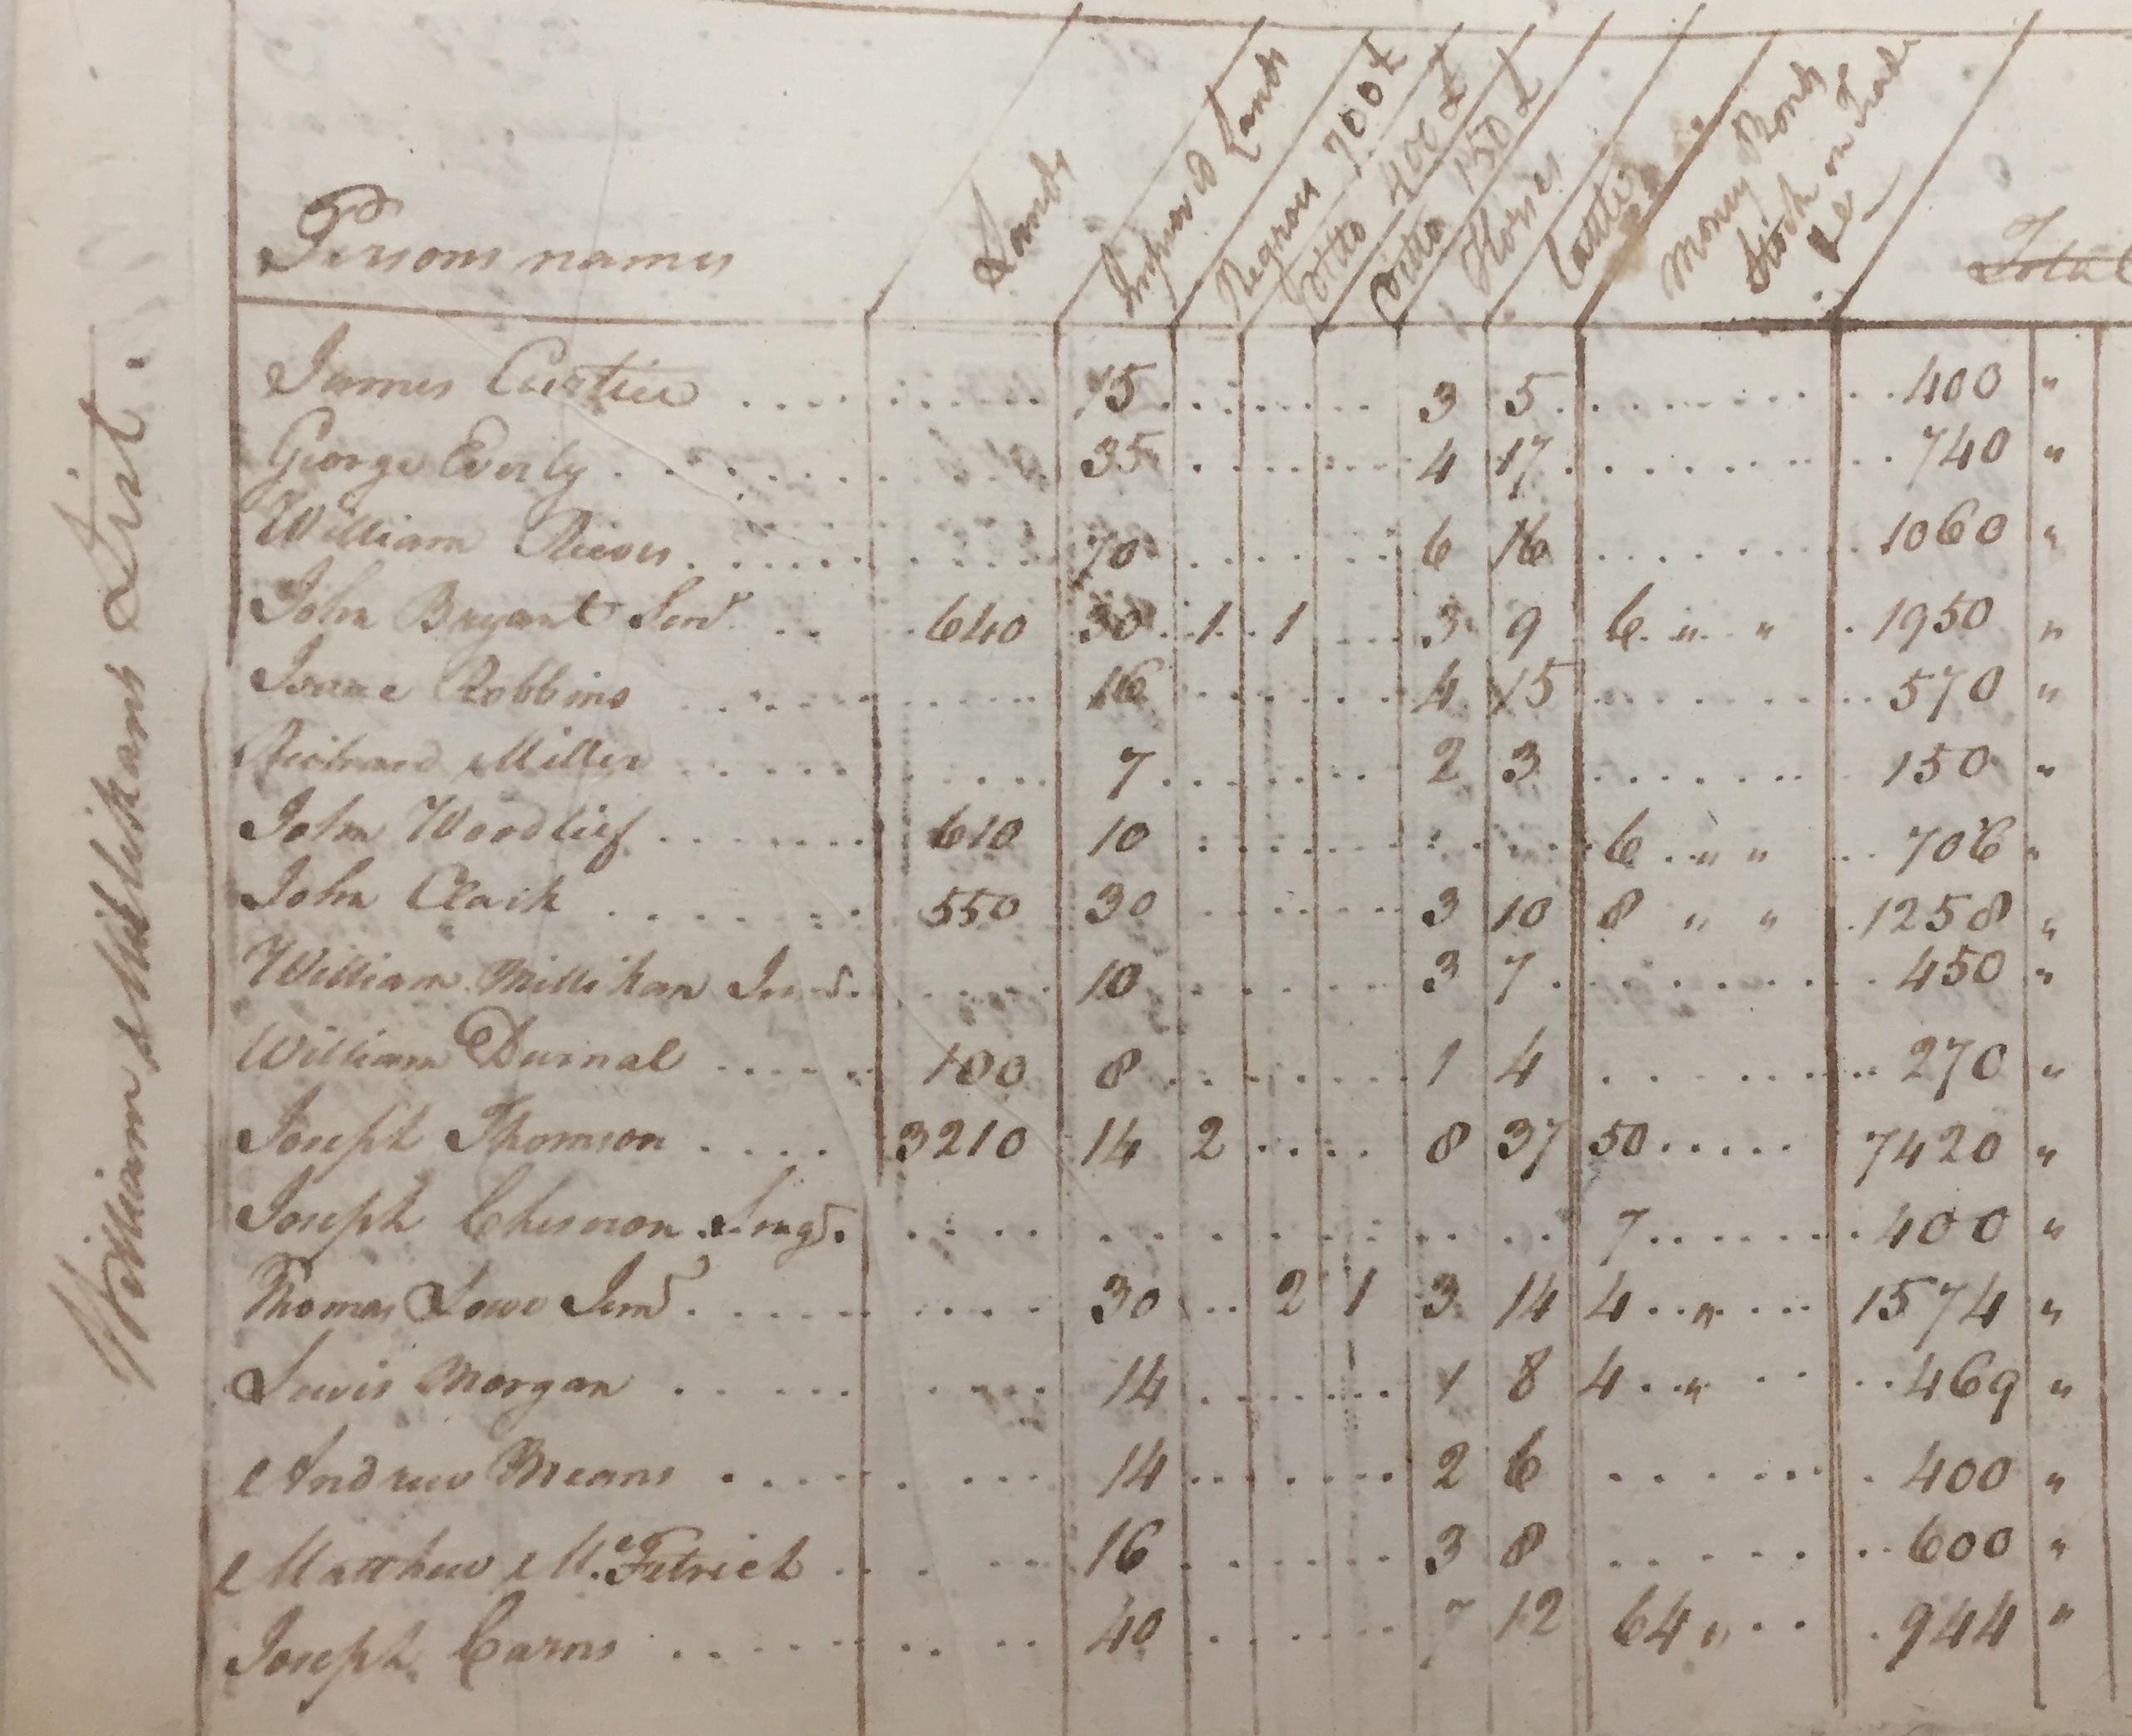 William Millikans List.
Persons names Lands Improv'd Lands Negroes 700£ Ditto 400£ Ditto 150£ Horses Cattle Money Bonds Stock in Trade &c Total
James 15 3 5 400 "
George Everly 35 4 17 740 "
William Reeves 70 6 16 1060 "
John Bryant Senr. 640 30 1 1 3 9 6 " " 1950 "
Isaac Robbins 16 4 15 570 "
Richard Miller 7 2 3 150 "
John Woodlief 610 10 6 " " 706 "
John Clark 550 30 3 10 8 " " 1258 "
William Millikan Junr. 10 3 7 450 "
William Durnal 100 8 1 4 270 "
Joseph Thomson 3210 14 2 8 37 50 7420 "
Joseph 7 400 "
Thomas Lowe Senr. 30 2 1 3 14 4 " 1574 "
Lewis Morgan 14 1 8 4 " 469 "
Andrew Means 14 2 6 400 "
Matthew Mc.Fetrich 16 3 8 600 "
Joseph Carns 40 7 12 64 " 944 "